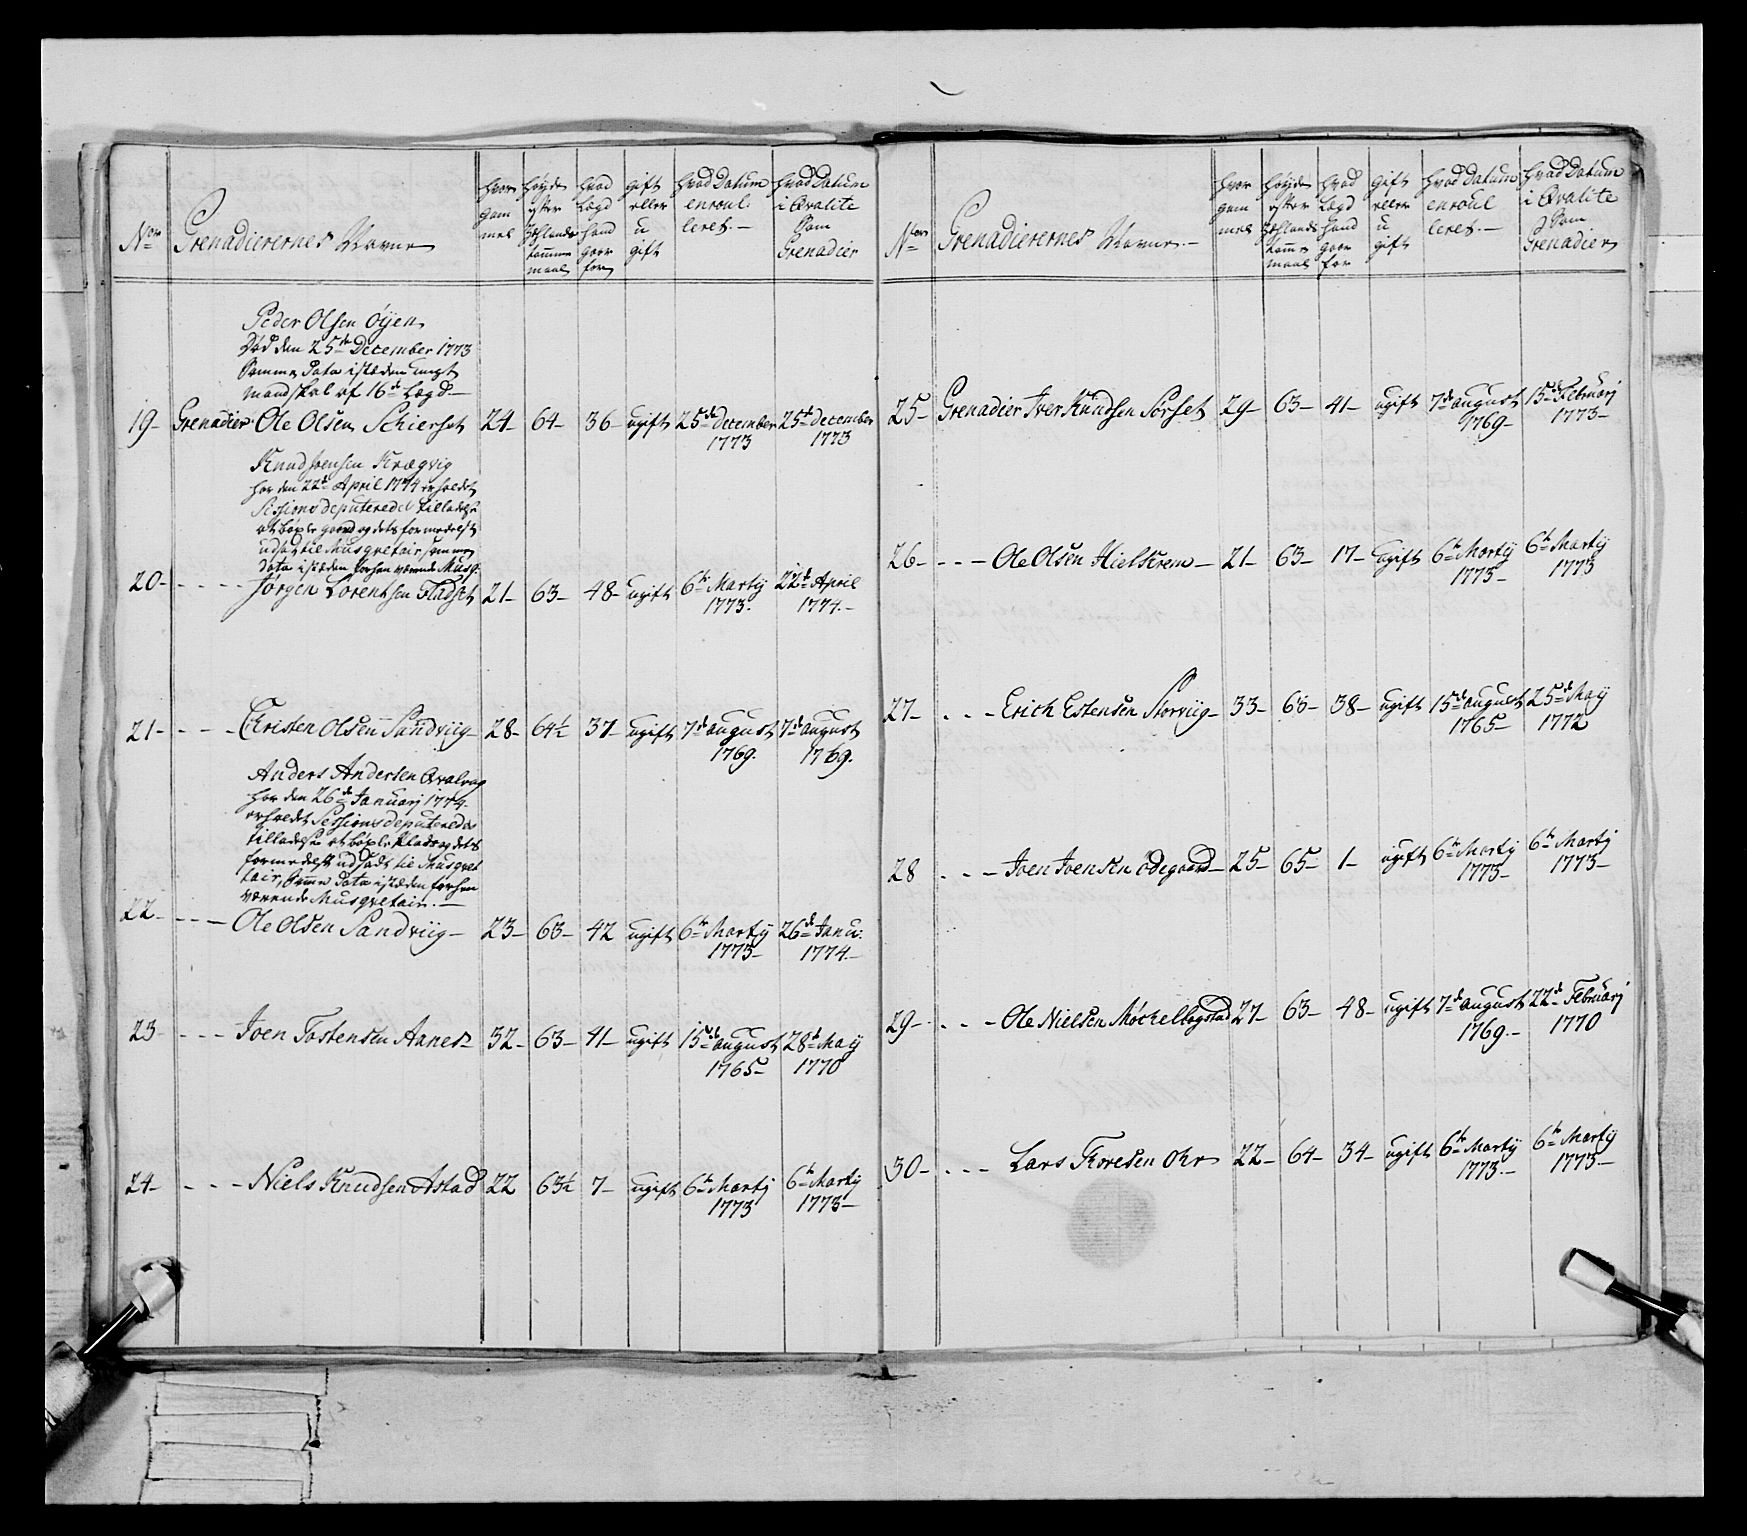 No
Grenadierernes Navne
hvor gam mel
høyde efter Zellands tomme maal
hvad Lægd hand goer for
gift eller u gift
hvad Datum enroul leret.
hvad Datum i Qvalite Som Grenadier
Peder Olsen Øyen
Død den 25de December 1773
Samme Dato isteden ungt
mandskab af 16de Lægd
19 Grenadier Ole Olsen Schierset 24 64 36 ugift 25de December 1773 25de December 1773
Knud Joensen Krægvig
har den 22de April 1774 erholdet
Sessions deputeredes tilladelse
at bøxle gaard og dets formedelst
udsat til Musqvetair samme
Dato isteden forhen værende Musq.
20 - - - Jørgen Lorentsen Fladset 21 63 48 ugift 6te Martij 1773. 22de April 1774.
21 - - - Christen Olsen Sandviig 28 64½ 37 ugift 7de august 1769. 7de august 1769.
Anders Andersen Qvalvog
har den 26de Januarj 1774.
erholdet Sessions deputeredes
tilladelse at bøxle Plads og dets
formedelst udsadt til Musqvet
tair, Samme Dato isteden forhen
værende Musqvetair.
22 - - - Ole Olsen Sandviig 23 63 42 ugift 6te Martij 1773 26de Janu. 1774.
23 - - - Joen Tostensen Aanes 32 63 41 ugift 15de august 1765 28de Maij 1770
24 - - - Niels Knudsen Astad 22 63½ 7 ugift 6te Martij 1773 6te Martij 1773
No
Grenadierernes Navne.
hvor gam mel
høyde efter Zellands tomme maal
hvad Lægd hand goer for
gift eller u gift
hvad Datum enroul leret.
hvad Datum i Qvalite Som Grenadier
25 Grenadier Iver Knudsen Sorset 29 63 41 ugift 7de august 1769 15de Februarj 1773
26 - - - Ole Olsen Hielskrem 21 63 17 ugift 6te Martij 1773 6te Martij 1773
27 - - - Erich Estensen Storviig 33 63 38 ugift 15de august 1765 25de Maij 1772
28 - - - Joen Joensen Ødegaard 25 65 1 ugift 6te Martij 1773 6te Martij 1773
29 - - - Ole Nielsen Møckelbogstad 27 63 48 ugift 7de august 1769. 22de Februarj 1770
30 - - - Lars Thoresen Ohr 22 64 34 ugift 6te Martij 1773 6te Martij 1773